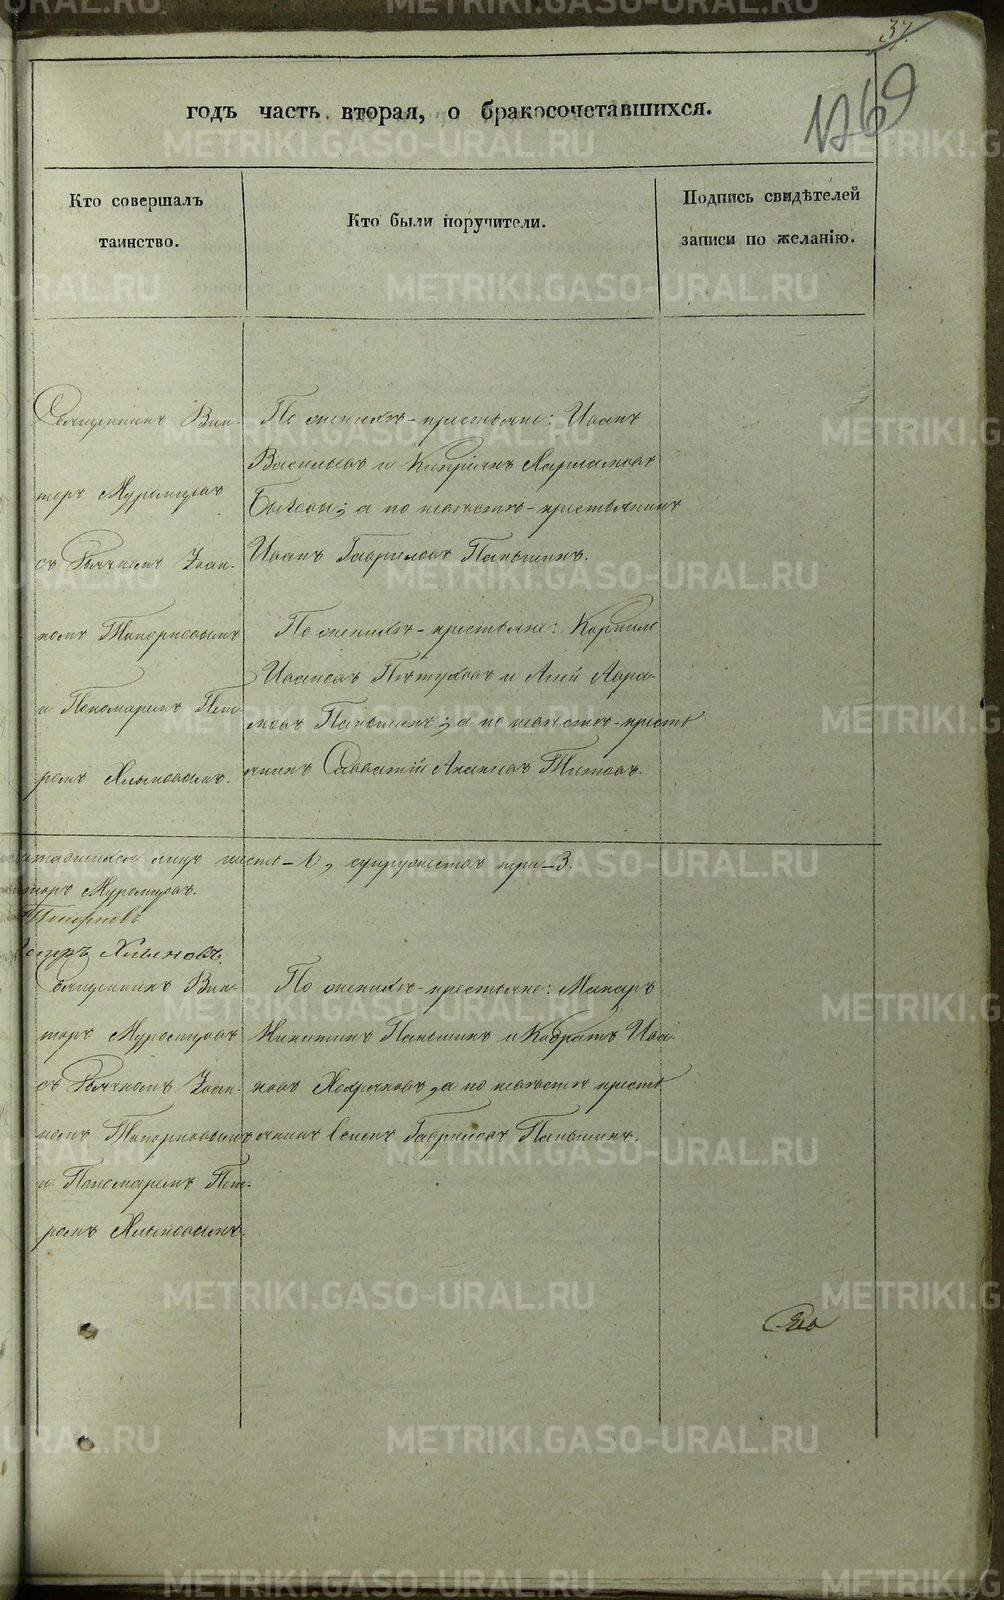 37.
1769
годъ часть вторая, о бракосочетавшихся.
Кто совершалъ
таинство.
Кто были поручители.
Подпись свидѣтелей
записи по желанію.
Священникъ Вик-
торъ Муромцовъ
съ Дьячкомъ Іоан-
номъ Топорковымъ
и Пономаремъ Пет-
ромъ Хлыновымъ.
По женихѣ - крестьяне: Иванъ
Васильевъ и Кипріянъ Харламповъ
Быковы; а по невѣстѣ - крестьянинъ
Иванъ Гавриловъ Паньшинъ.
По женихѣ - крестьяне: Корнило
Ивановъ Пѣтуховъ и Агей Авра-
мовъ Паньшинъ; а по невѣстѣ - кресть
янинъ Савватій Ананьевъ Титовъ.
лицъ шесть - 6, супружествъ три - 3.
торъ Муромцовъ.
Топорковъ
Петръ Хлыновъ.
Священникъ Вик-
торъ Муромцовъ
съ Дьячкомъ Іоан-
номъ Топорковымъ
и Пономаремъ Пет-
ромъ Хлыновымъ.
По женихѣ - крестьяне: Макаръ
Никитинъ Паньшинъ и Кодратъ Ива-
новъ а по невѣстѣ кресть
янинъ Семенъ Гавриловъ Паньшинъ.
METRIKI.GASO-URAL.RU